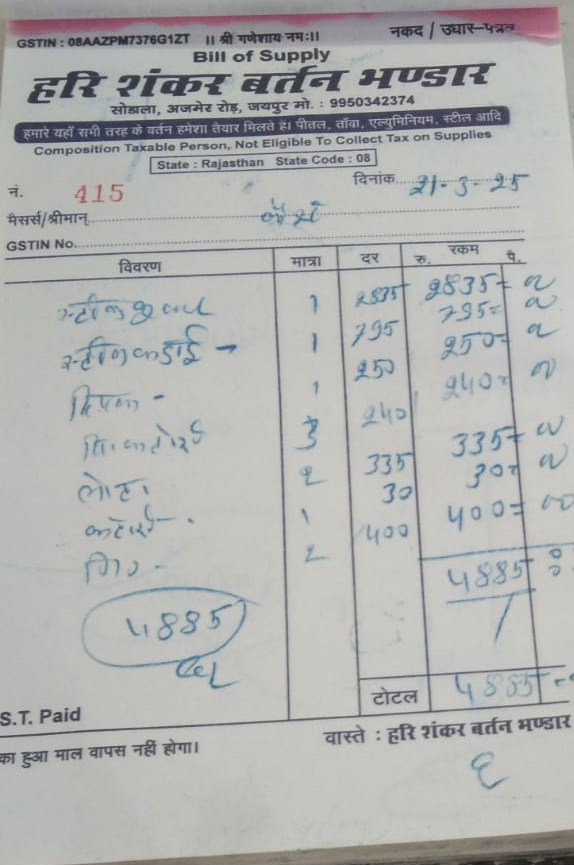 GSTIN : 08AAZPM7376G1ZT ॥ श्री गणेशाय नमः॥ नकद / उधार-पत्रक
Bill of Supply
हरि शंकर बर्तन भण्डार
सोडाला, अजमेर रोड़, जयपुर मो. : 9950342374
हमारे यहाँ सभी तरह के बर्तन हमेशा तैयार मिलते है। पीतल, ताँबा, एल्युमिनियम, स्टील आदि
Composition Taxable Person, Not Eligible To Collect Tax on Supplies
State : Rajasthan State Code : 08
नं. 415 दिनांक 21-3-25
मैसर्स/श्रीमान्
GSTIN No.
विवरण मात्रा दर रु. रकम पै.
1 2835 2835=
स्टील कडाई - 1 795 795=
1 250 250=
3 240 240=
लोटा 2 335 335=
कटोरी 1 30 30=
2 400 400=
4885
4885
टोटल 4885
S.T. Paid
का हुआ माल वापस नहीं होगा। वास्ते : हरि शंकर बर्तन भण्डार